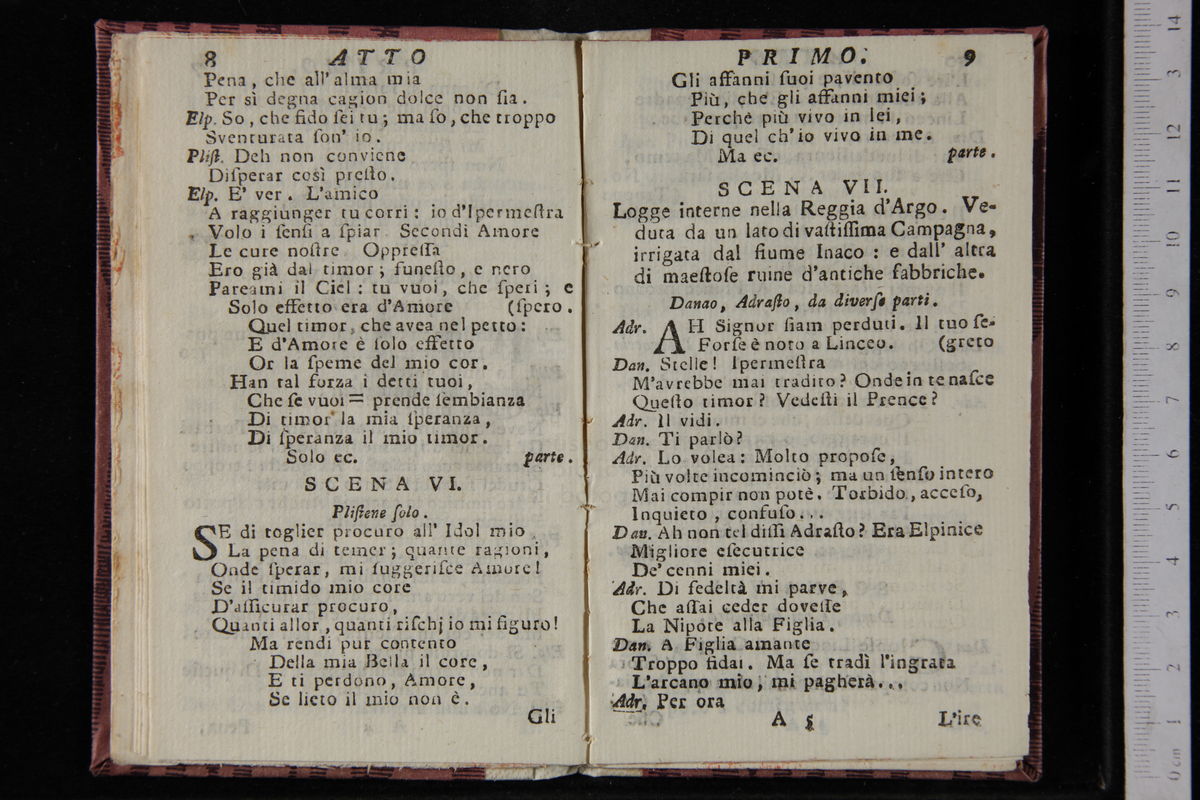 8 ATTO
Pena, che all' alma mia
Per sì degna cagion dolce non ſia.
Elp. So, che fido ſei tu; ma ſo, che troppo
Sventurata ſon' io.
Pliſt. Deh non conviene
Diſperar così preſto.
Elp. E' ver. L'amico
A raggiunger tu corri: io d'Ipermeſtra
Volo i ſenſi a ſpiar. Secondi Amore
Le cure noſtre. Oppreſſa
Ero già dal timor; funeſto, e nero
Pareami il Ciel: tu vuoi, che ſperi; e
Solo effetto era d'Amore (ſpero.
Quel timor, che avea nel petto:
E d'Amore è ſolo effetto
Or la ſpeme del mio cor.
Han tal forza i detti tuoi,
Che ſe vuoi = prende ſembianza
Di timor la mia ſperanza,
Di ſperanza il mio timor.
Solo ec. parte.
SCENA VI.
Pliſtene ſolo.
SE di toglier procuro all' Idol mio
La pena di temer; quante ragioni,
Onde ſperar, mi ſuggeriſce Amore!
Se il timido mio core
D'aſſicurar procuro,
Quanti allor, quanti riſchj io mi figuro!
Ma rendi pur contento
Della mia Bella il core,
E ti perdono, Amore,
Se lieto il mio non è.
Gli
PRIMO. 9
Gli affanni ſuoi pavento
Più, che gli affanni miei;
Perchè più vivo in lei,
Di quel ch'io vivo in me.
Ma ec. parte.
SCENA VII.
Logge interne nella Reggia d'Argo. Ve-
duta da un lato di vaſtiſſima Campagna,
irrigata dal fiume Inaco: e dall' altra
di maeſtoſe ruine d'antiche fabbriche.
Danao, Adraſto, da diverſe parti.
Adr. AH Signor ſiam perduti. Il tuo ſe-
Forſe è noto a Linceo. (greto
Dan. Stelle! Ipermeſtra
M'avrebbe mai tradito? Onde in te naſce
Queſto timor? Vedeſti il Prence?
Adr. Il vidi.
Dan. Ti parlò?
Adr. Lo volea: Molto propoſe,
Più volte incominciò; ma un ſenſo intero
Mai compir non potè. Torbido, acceſo,
Inquieto, confuſo...
Dan. Ah non tel diſſi Adraſto? Era Elpinice
Migliore eſecutrice
De' cenni miei.
Adr. Di fedeltà mi parve,
Che aſſai ceder doveſſe
La Nipote alla Figlia.
Dan. A Figlia amante
Troppo fidai. Ma ſe tradì l'ingrata
L'arcano mio, mi pagherà...
Adr. Per ora
A 5 L'ire
0 cm 1 2 3 4 5 6 7 8 9 10 11 12 3 14